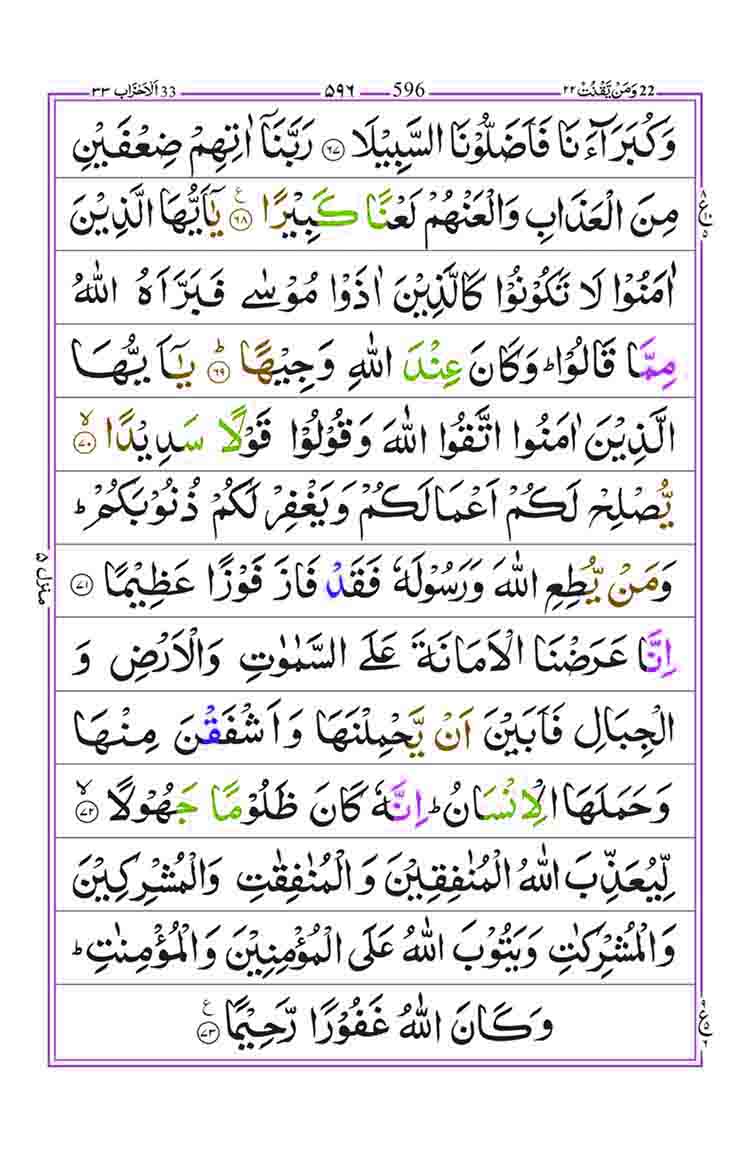 22 وَمَنْ يَّقْنُتْ ۲۲ 596 ۵۹۶ 33 اَلْاَحْزَاب ۳۳
وَكُبَرَآءَنَا فَاَضَلُّوْنَا السَّبِيْلَا ۶۷ رَبَّنَآ اٰتِهِمْ ضِعْفَيْنِ
مِنَ الْعَذَابِ وَالْعَنْهُمْ لَعْنًا كَبِيْرًا ۶۸ ع يٰۤاَيُّهَا الَّذِيْنَ
اٰمَنُوْا لَا تَكُوْنُوْا كَالَّذِيْنَ اٰذَوْا مُوْسٰى فَبَرَّاَهُ اللّٰهُ
مِمَّا قَالُوْا ؕ وَكَانَ عِنْدَ اللّٰهِ وَجِيْهًا ؕ ۶۹ يٰۤاَيُّهَا
الَّذِيْنَ اٰمَنُوا اتَّقُوا اللّٰهَ وَقُوْلُوْا قَوْلًا سَدِيْدًا ۙ ۷۰
يُّصْلِحْ لَكُمْ اَعْمَالَكُمْ وَيَغْفِرْ لَكُمْ ذُنُوْبَكُمْ ؕ
وَمَنْ يُّطِعِ اللّٰهَ وَرَسُوْلَهٗ فَقَدْ فَازَ فَوْزًا عَظِيْمًا ۷۱
اِنَّا عَرَضْنَا الْاَمَانَةَ عَلَى السَّمٰوٰتِ وَالْاَرْضِ وَ
الْجِبَالِ فَاَبَيْنَ اَنْ يَّحْمِلْنَهَا وَاَشْفَقْنَ مِنْهَا
وَحَمَلَهَا الْاِنْسَانُ ؕ اِنَّهٗ كَانَ ظَلُوْمًا جَهُوْلًا ۙ ۷۲
لِّيُعَذِّبَ اللّٰهُ الْمُنٰفِقِيْنَ وَالْمُنٰفِقٰتِ وَالْمُشْرِكِيْنَ
وَالْمُشْرِكٰتِ وَيَتُوْبَ اللّٰهُ عَلَى الْمُؤْمِنِيْنَ وَالْمُؤْمِنٰتِ ؕ
وَكَانَ اللّٰهُ غَفُوْرًا رَّحِيْمًا ۷۳ ع
منزل ۵